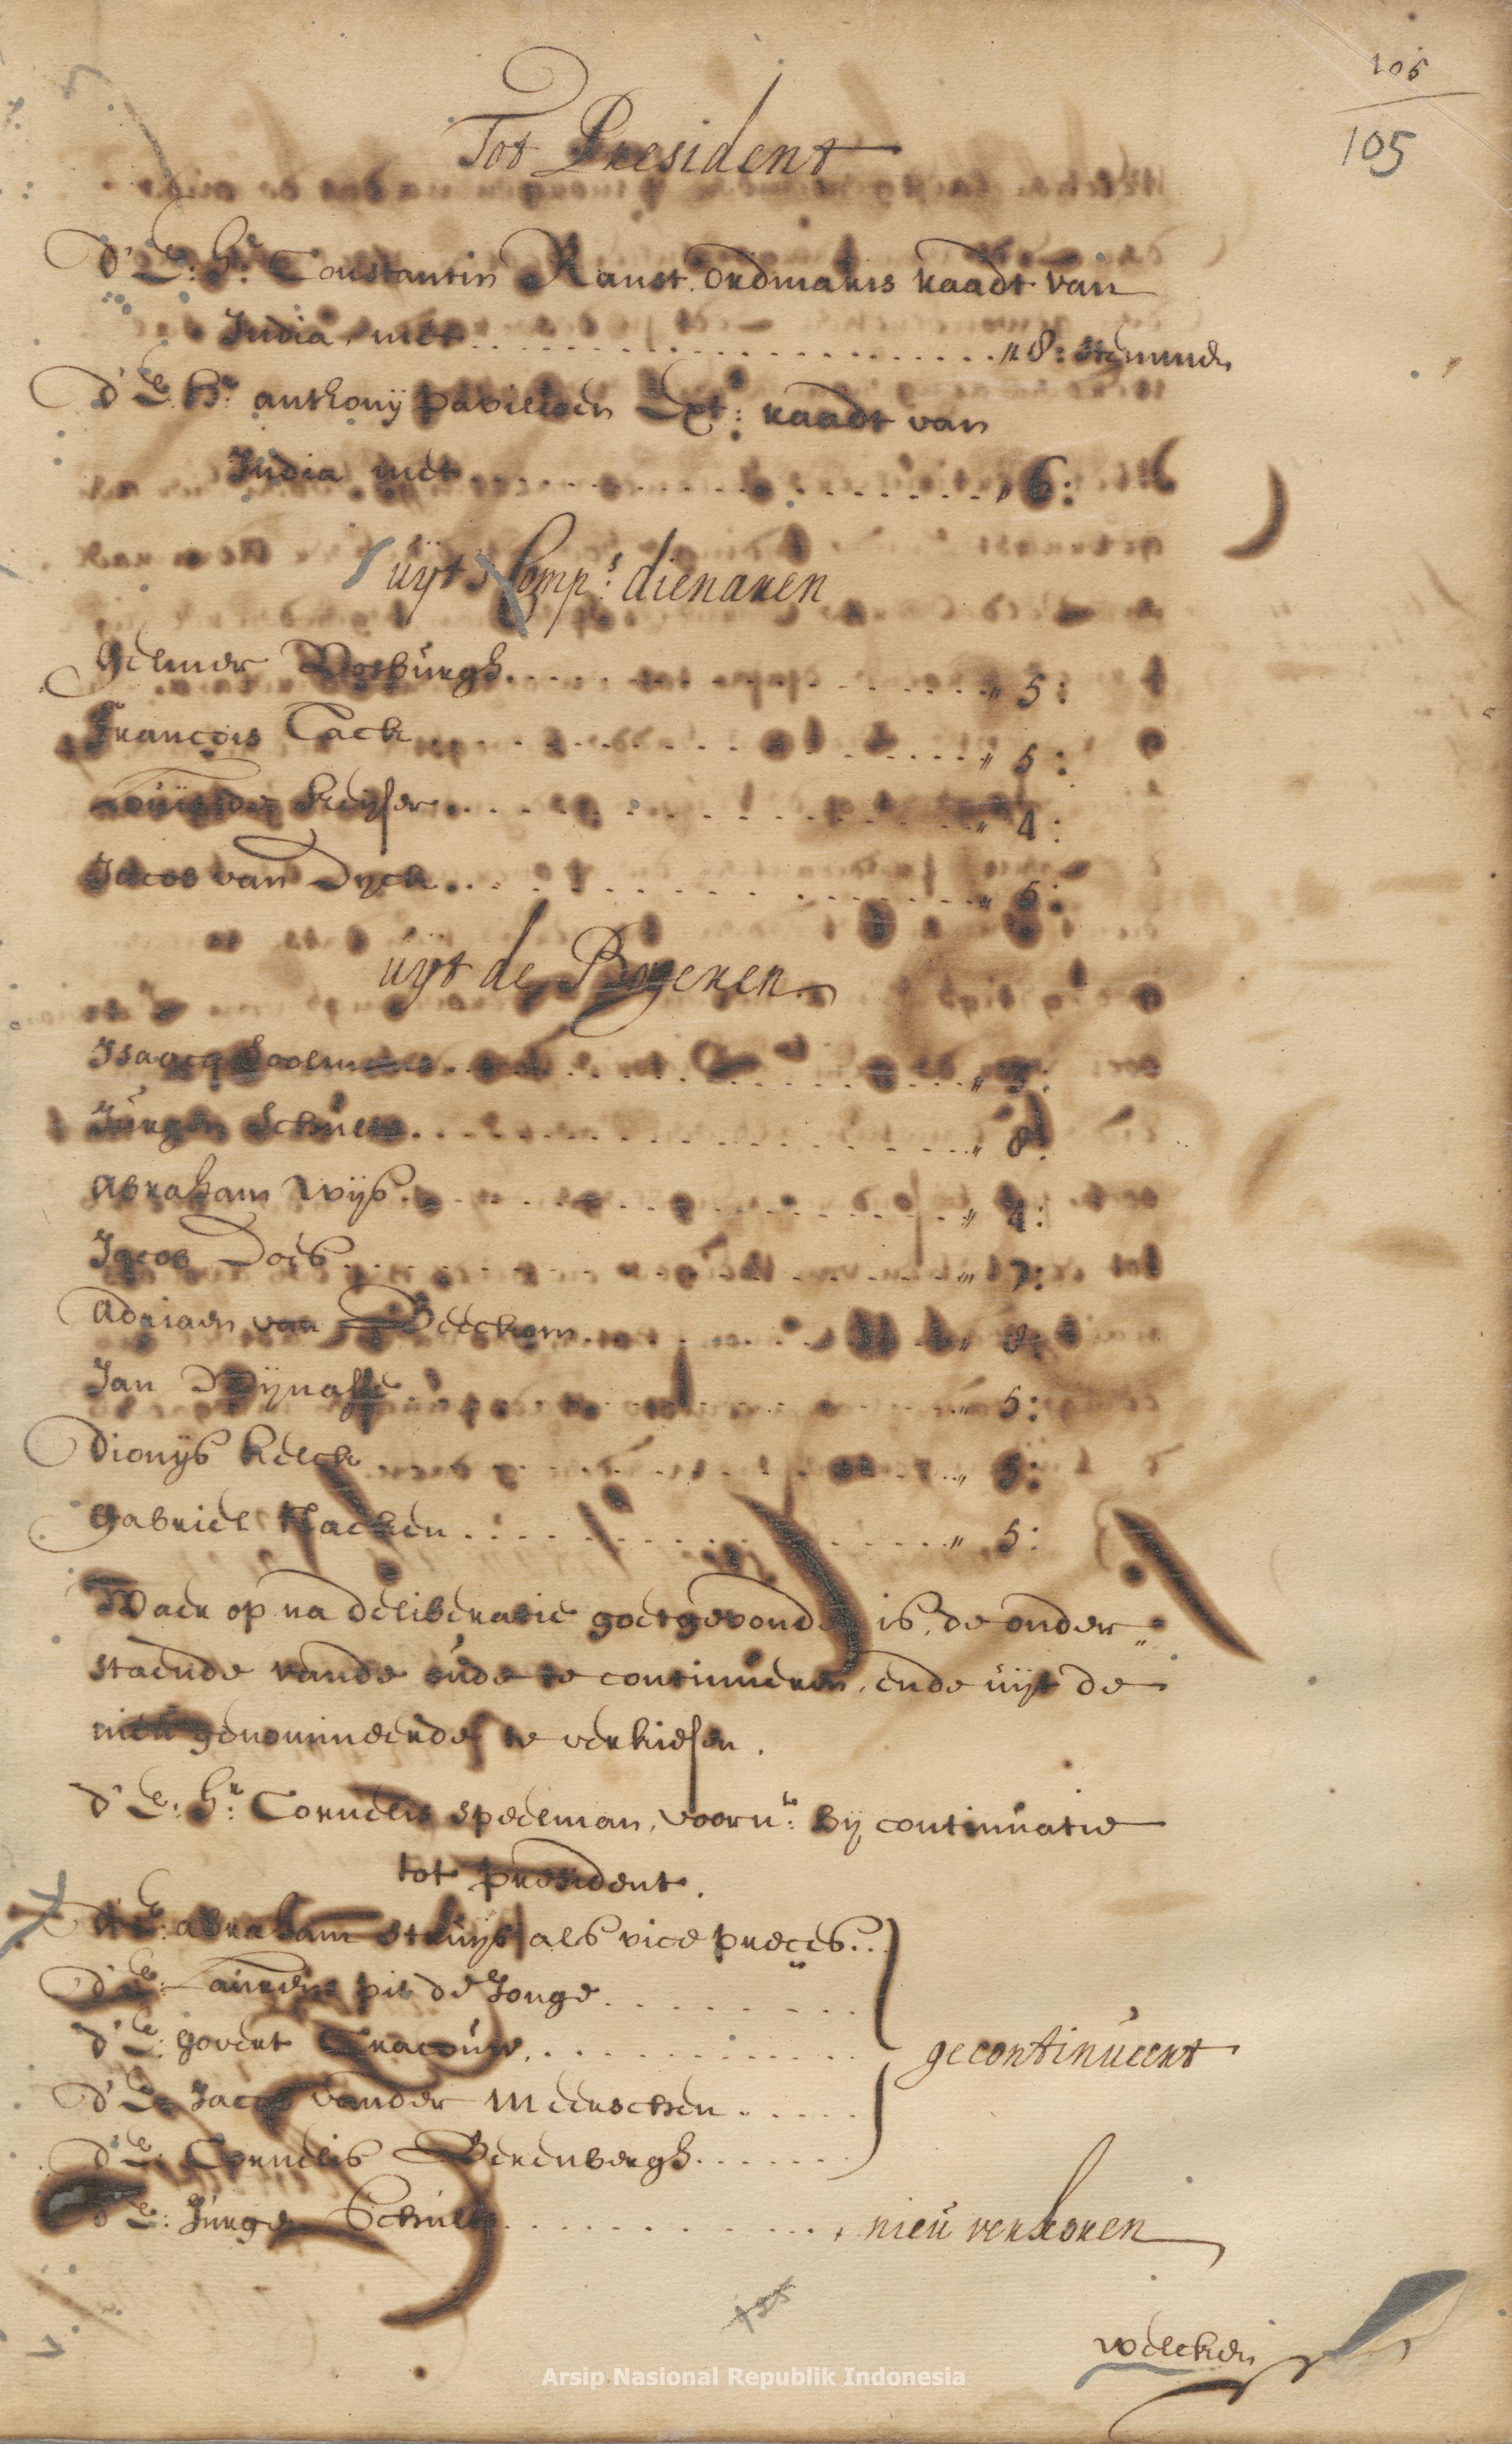 105
105
Tot President
d' E: Hr: Constantin Ranst ordinaris raadt van
India, met " 8: stemmen
d' E: Hr: anthonij pavilioen Ext: raadt van
India met " 6:
uijt s' Comp:s dienaren
Gelmer Vosburgh " 5:
Francois Tack " 5:
Keijser " 4:
Jacob van Dyck " 5:
uijt de Borgeren
Isaacq
Jurgen Schuler " 8:
Abraham wijs " 4:
Jacob Does " 7:
Adriaen van Beeckom " 8:
Jan " 5:
Dionijs Kelck
Gabriel Hacken " 5:
Waer op na deliberatie goetgevonden is, de onder„
staende vande oude te continueren, ende uijt de
nieu genomineerdes te verkiesen.
d' E: Hr: Cornelis Speelman, voorn:t bij continuatie
tot president.
d' E: abraham struijs als vice preces
d' E: Laurens pit de Jonge
d' E: govert
d' E: Jacob vander Meerschen
d' E: Cornelis Berenbergh
gecontinueert
d' E: Jurgen Schuler nieu verkoren
welcken
Arsip Nasional Republik Indonesia